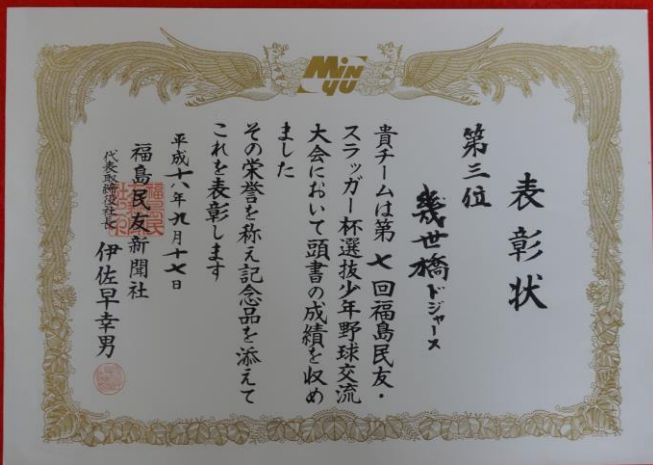 MiN
YU
表彰状
第三位
幾世橋ドジャース
貴チームは第七回福島民友・
スラッガー杯選抜少年野球交流
大会において頭書の成績を収め
ました
その栄誉を称え記念品を添えて
これを表彰します
平成十八年九月十七日
福島民友新聞社
代表取締役社長
伊佐早幸男